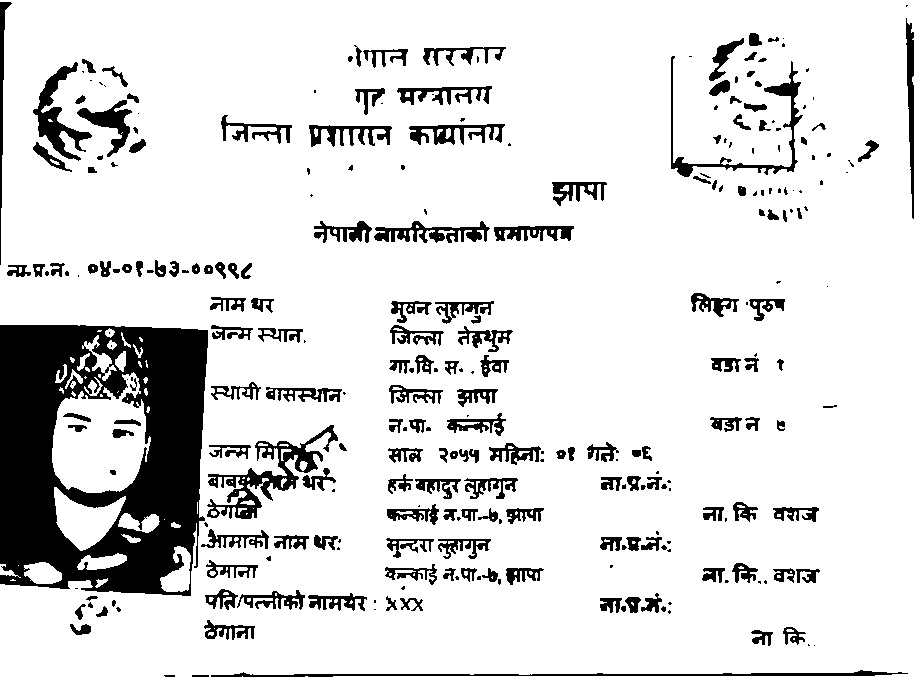 नेपाल सरकार
गृह मन्त्रालय
जिल्ला प्रशासन कार्यालय
झापा
नेपाली नागरिकताको प्रमाणपत्र
ना.प्र.नं. ०४-०१-७३-००९९८
नाम थर भुवन लुहागुन लिङ्ग पुरुष
जन्म स्थान. जिल्ला तेह्रथुम
गा.वि.स. ईवा वडा नं १
स्थायी बासस्थान जिल्ला झापा
न.पा. कन्काई वडा नं ७
जन्म मिति साल २०५५ महिना: ०१ गते: ०६
बाबुको नाम थर: हर्क बहादुर लुहागुन ना.प्र.नं.:
ठेगाना कन्काई न.पा.-७, झापा ना. कि. वंशज
आमाको नाम थर: सुन्दरा लुहागुन ना.प्र.नं.:
ठेगाना कन्काई न.पा.-७, झापा ना. कि.. वंशज
पति/पत्नीको नामथर : XXX ना.प्र.नं.:
ठेगाना ना कि..